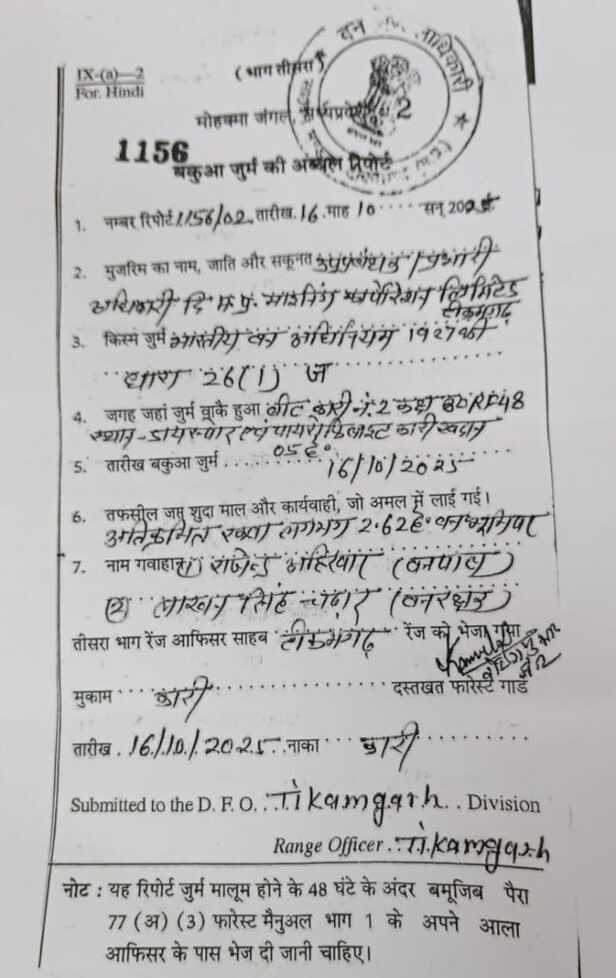 IX-(a)—2
For. Hindi
( भाग तीसरा )
मोहकमा जंगल, मध्यप्रदेश
2
1156
बकुआ जुर्म की अव्वल रिपोर्ट
1. नम्बर रिपोर्ट 1156/02 तारीख. 16 .माह 10 ..... सन् 202
2. मुजरिम का नाम, जाति और सकूनत उपप्रबंधक / प्रभारी
अधिकारी दि म.प्र. माइनिंग कार्पोरेशन लिमिटेड
टीकमगढ़
3. किस्म जुर्म भारतीय वन अधिनियम 1927 की
धारा 26(1) ज
4. जगह जहां जुर्म वाकै हुआ बीट कारी नं. 2 कक्ष RF48
स्थान - डायस्पोर एवं पायरोफिलाइट कारी खदान
5. तारीख बकुआ जुर्म ..... 16/10/2025
6. तफसील जप्त शुदा माल और कार्यवाही, जो अमल में लाई गई।
अतिक्रमित रकवा लगभग 2.62 हे. वनभूमि पर
7. नाम गवाहान (1) राजेन्द्र अहिरवार (वनपाल)
(2) लाखन सिंह (वनरक्षक)
तीसरा भाग रेंज आफिसर साहब टीकमगढ़ रेंज को भेजा गया
मुकाम .... कारी .............. दस्तखत फारेस्ट गार्ड
तारीख . 16/10/2025 ..नाका ... कारी ..........
Submitted to the D. F. O. . Tikamgarh. . Division
Range Officer .. Tikamgarh
नोट : यह रिपोर्ट जुर्म मालूम होने के 48 घंटे के अंदर बमूजिब पैरा
77 (अ) (3) फारेस्ट मैनुअल भाग 1 के अपने आला
आफिसर के पास भेज दी जानी चाहिए।